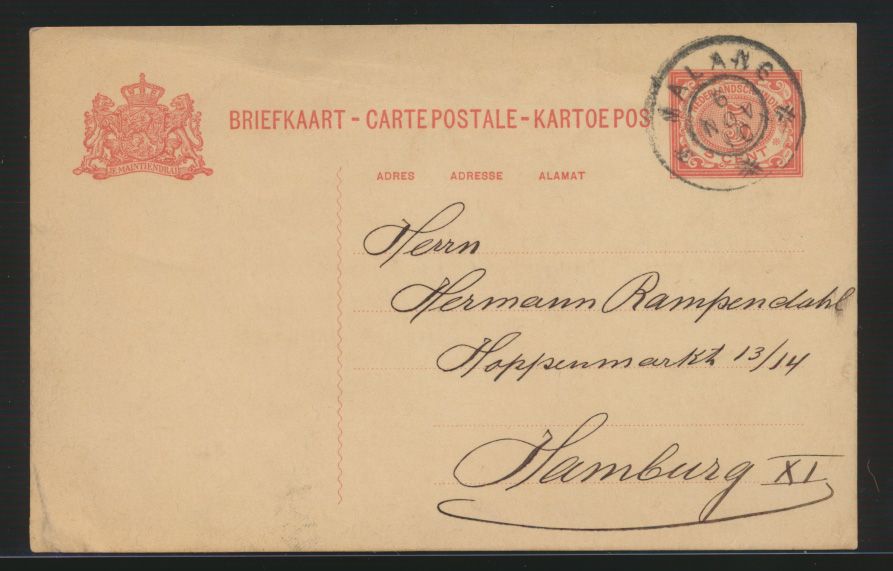 BRIEFKAART - CARTE POSTALE - KARTOE POS
MALANG
NEDERLANDSCH-INDIË
5 CENT
JE MAINTIENDRAI
ADRES ADRESSE ALAMAT
Herrn
Hermann Rampendahl
Hoppenmarkt 13/14
Hamburg XI